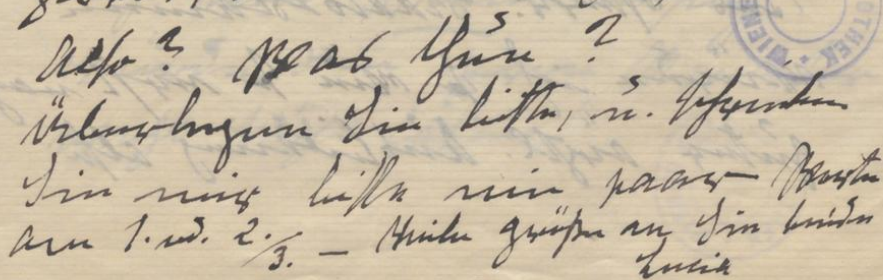 WIENE OTHEK *
Also? Was thun?
Überlegen Sie bitte, u. schreiben
Sie mir bitte ein paar Worte
am 1. od. 2./3. — Viele Grüße an Sie beide
Lucia